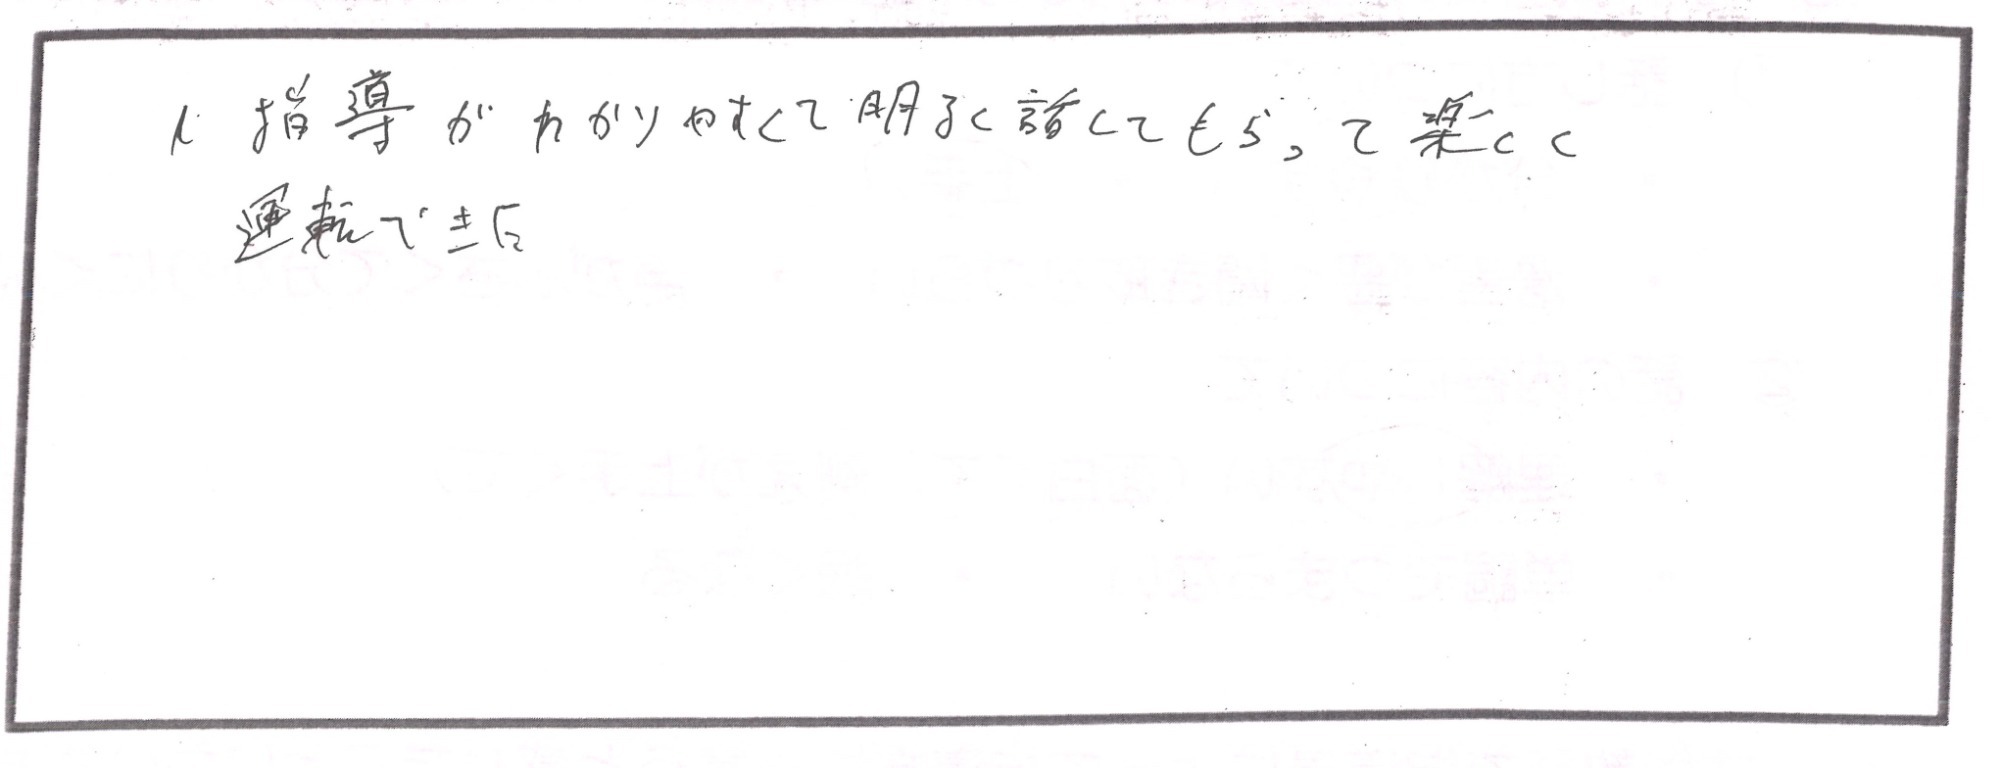 1. 指導がわかりやすくて明るく話してもらって楽しく
運転できた